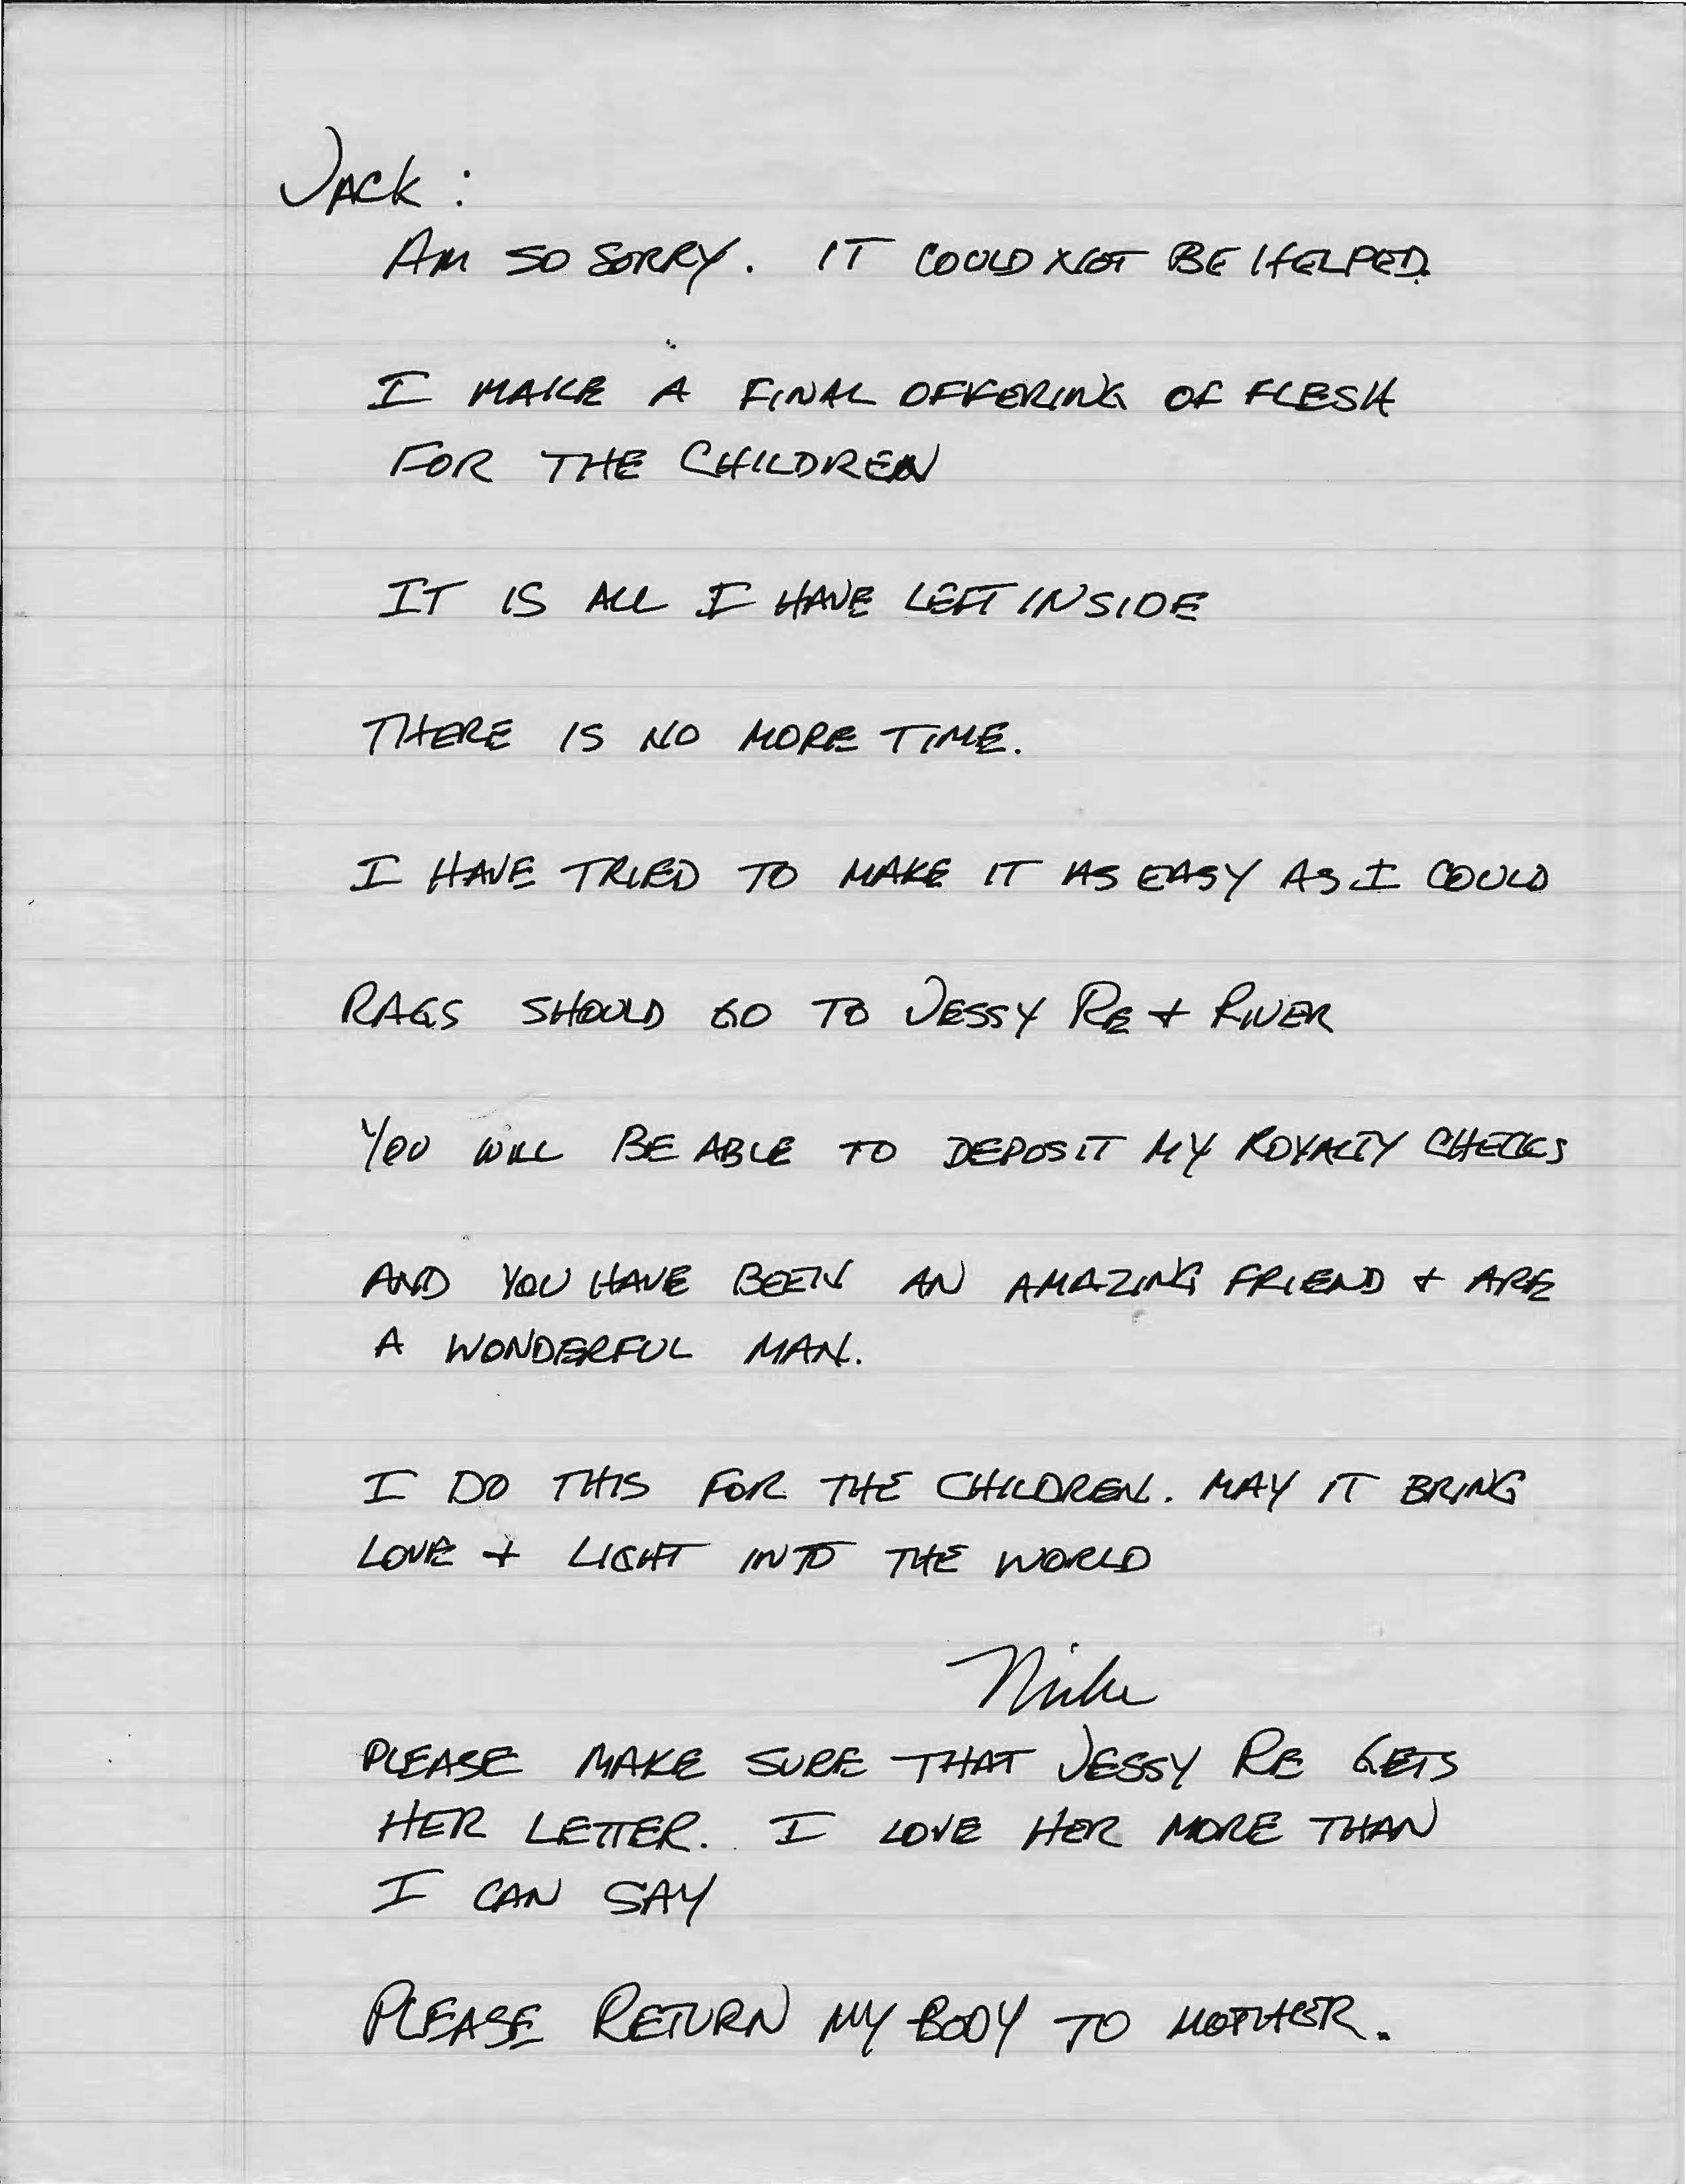 JACK:
AM SO SORRY. IT COULD NOT BE HELPED.
I MAKE A FINAL OFFERING OF FLESH
FOR THE CHILDREN
IT IS ALL I HAVE LEFT INSIDE
THERE IS NO MORE TIME.
I HAVE TRIED TO MAKE IT AS EASY AS I COULD
RAGS SHOULD GO TO JESSY RE + RIVER
YOU WILL BE ABLE TO DEPOSIT MY ROYALTY CHECKS
AND YOU HAVE BEEN AN AMAZING FRIEND + ARE
A WONDERFUL MAN.
I DO THIS FOR THE CHILDREN. MAY IT BRING
LOVE + LIGHT INTO THE WORLD
Mike
PLEASE MAKE SURE THAT JESSY RE GETS
HER LETTER. I LOVE HER MORE THAN
I CAN SAY
PLEASE RETURN MY BODY TO MOTHER.